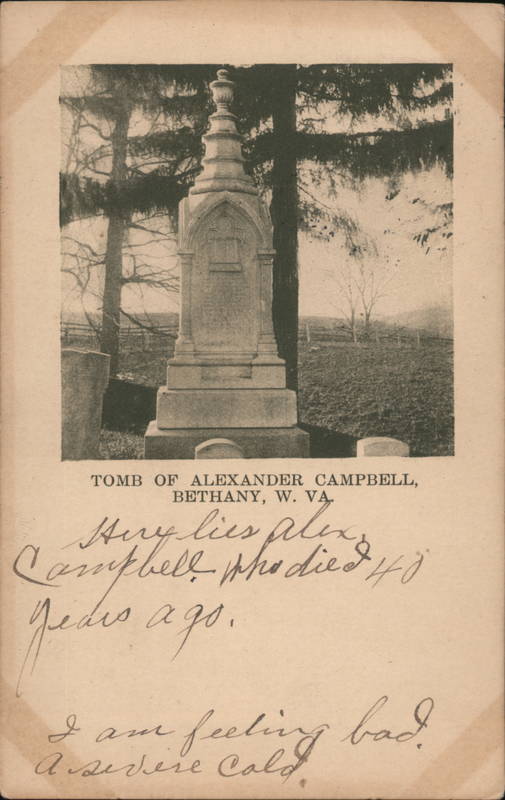 TOMB OF ALEXANDER CAMPBELL,
BETHANY, W. VA.
Here lies Alex.
Campbell. Who died 40
years ago.
I am feeling bad.
A severe Cold